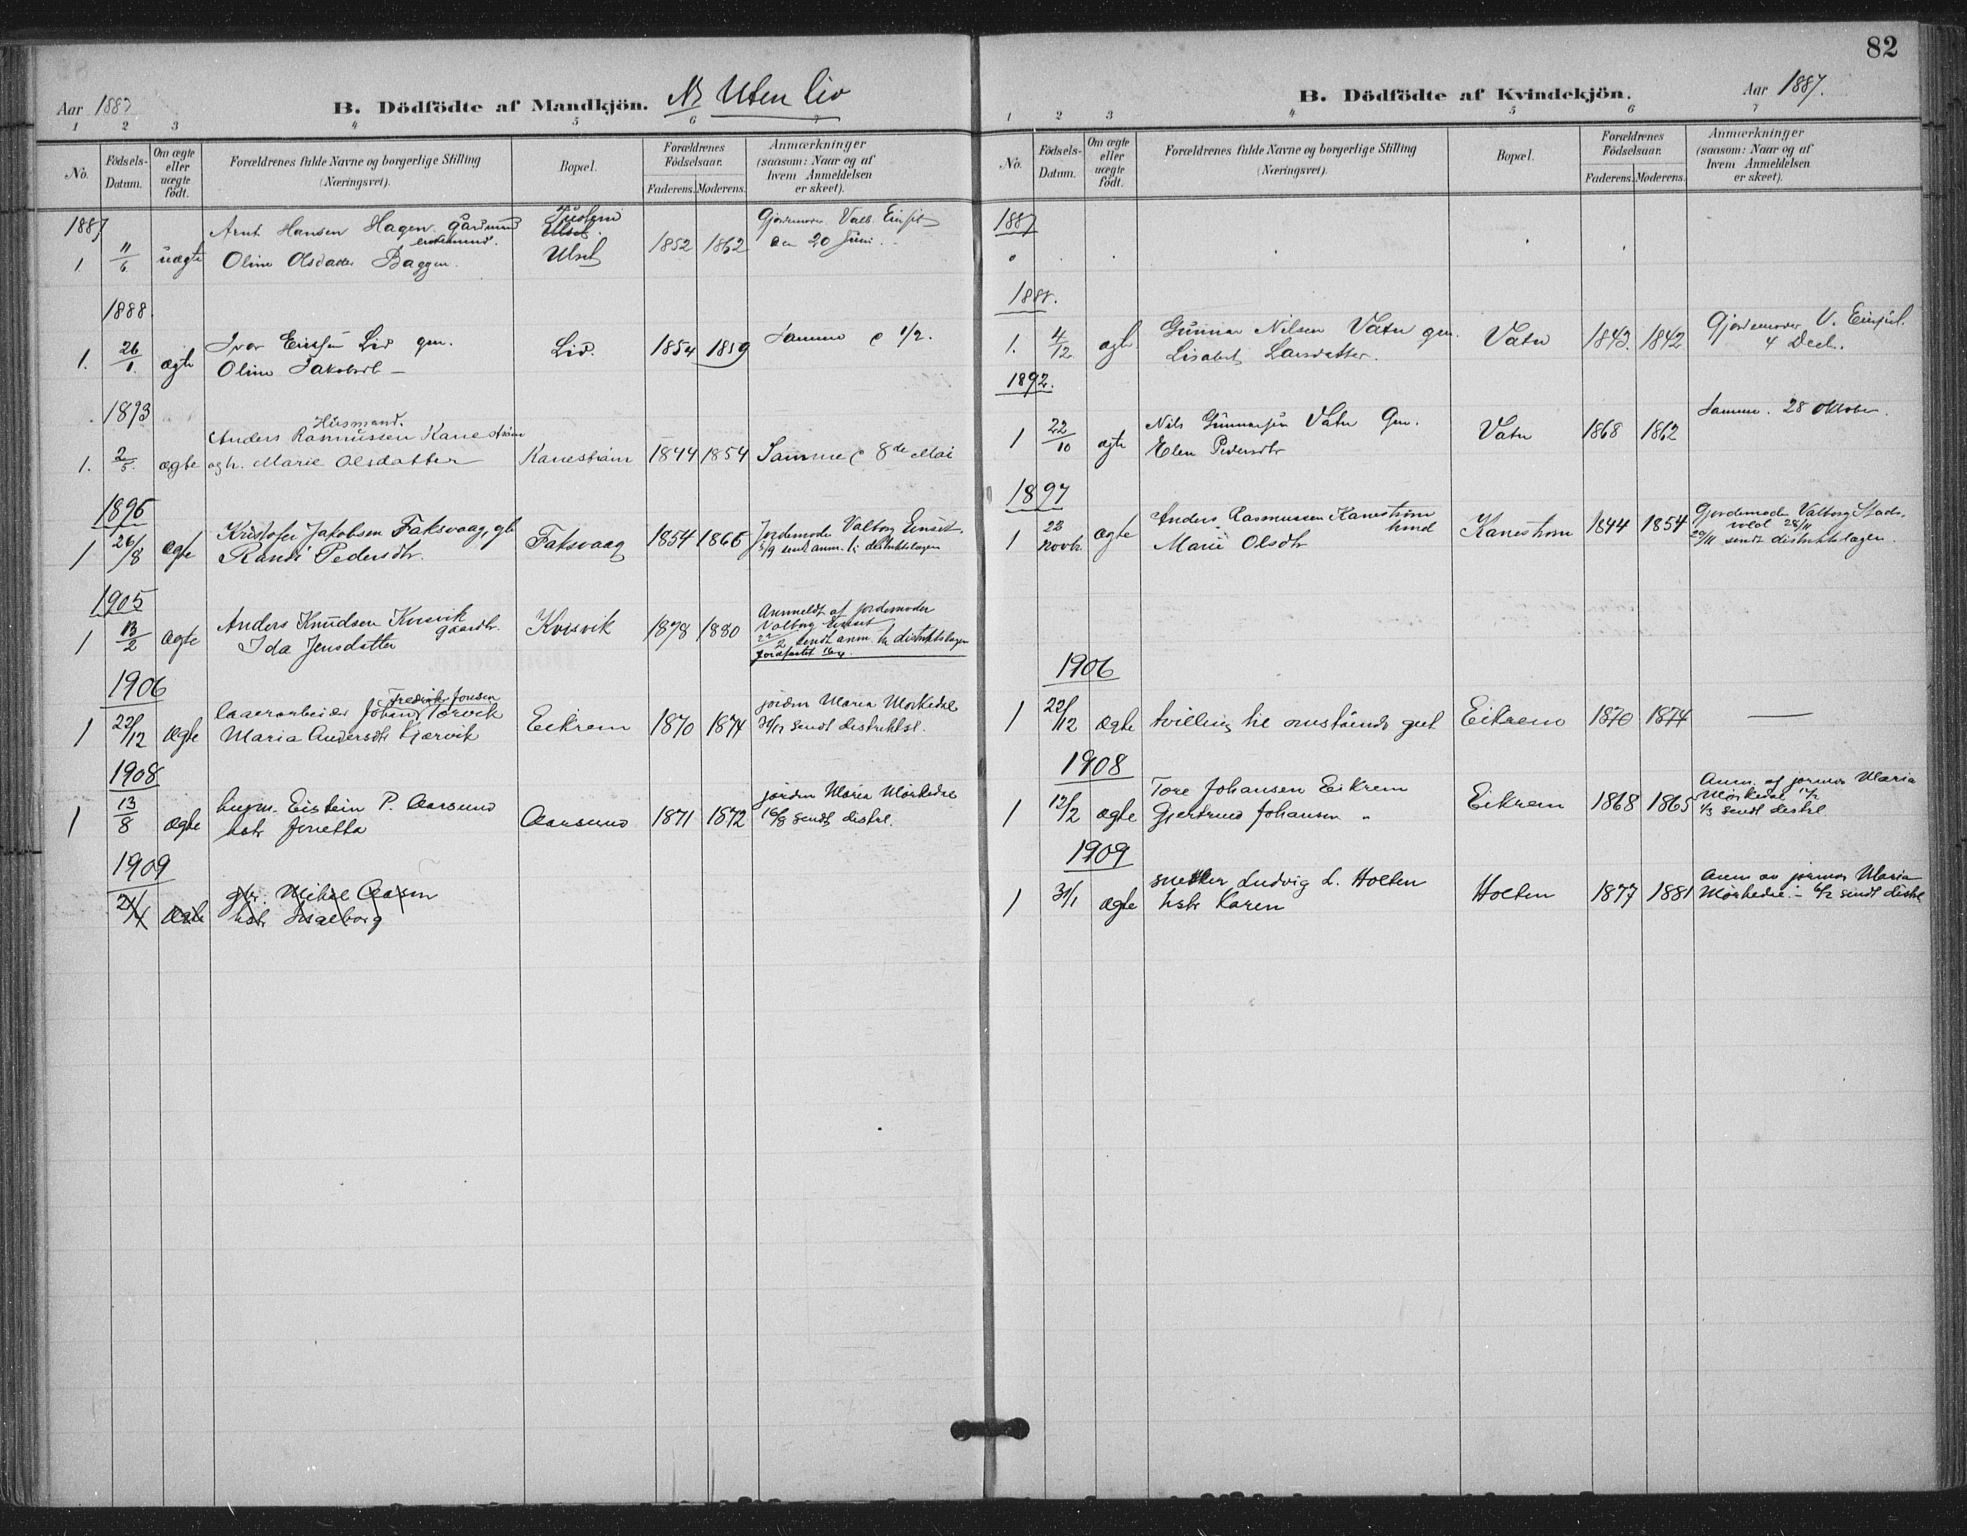 Aar 1887
B. Dödfödte af Mandkjön.
Uten Liv
1 2 3 4 5 6 7
No.
Födsels-Datum.
Om ægte eller uægte födt.
Forældrenes fulde Navne og borgerlige Stilling (Næringsvei).
Bopæl.
Forældrenes Födselsaar.
Faderens. Moderens.
Anmærkninger (saasom: Naar og af hvem Anmeldelsen er skeet).
1887
Arnt Hansen Hagen
1 11/6 uægte Oline Olsdatter Baggen. Ulset 1852 1862 den 20 Juni.
1888.
Ivar
1. 26/1 ægte Oline Lid. 1854 1859 Samme 1/2.
1893
Husmand.
Anders Rasmussen Kanestrøm
1. 2/5 ægte Marie Olsdatter Kanestrøm 1844 1854 Samme 8de Mai
1896
Kristofer Jakobsen Faksvaag, gb
1 26/8 ægte Randi Pedersdtr. Faksvaag 1854 1866 Jordemoder Valborg Einset
5/9 sendt anm. til distriktslægen
1905
Anders Knudsen Kvisvik
gaardbr.
1 13/2 ægte Ida Jensdatter Kvisvik 1878 1880 Anmeldt af jordemoder
Valborg Einset
22/2 sendt anm. til distriktslægen
1906
Fredrik Jonsen
Johan
1 22/12 ægte Maria Andersdtr Eikrem 1870 1874 jordm Maria Mørkedal
sendt distriktsl.
1908
husm. Eistein P. Aarsund
1 13/8 ægte hstr Jonetta Aarsund 1871 1872 jordm Maria Mørkedal
16/8 sendt distrl.
1909
gbr. Mikal Aasen
ægte hstr Ingeborg
82
B. Dödfödte af Kvindekjön.
Aar 1887.
1 2 3 4 5 6 7
No.
Födsels-Datum.
Om ægte eller uægte födt.
Forældrenes fulde Navne og borgerlige Stilling (Næringsvei).
Bopæl.
Forældrenes Födselsaar.
Faderens. Moderens.
Anmærkninger (saasom: Naar og af hvem Anmeldelsen er skeet).
1887
1888.
Gunnar Nilsen Vatn gm.
1. 4/12 Lisabet Larsdatter. Vatn 1843. 1842 Gjordemoder V. Einset.
4 Decb.
1892.
Nils Gunnarsen Vatn Gm.
1 22/10 ægte Elen Pedersdtr Vatn 1868 1862 Samme. 28 Oktober.
1897
Anders Rasmussen Kanestrøm
1 23 novbr. ægte Marie Olsdtr Kanestrøm 1844 1854 Gjordemoder Valborg Stads-
vold 28/11
29/11 sendt distriktslægen.
1906
1 22/12 ægte tvilling til omstående gut Eikrem 1870 1874 —
1908
Tore Johansen Eikrem
1 12/2 ægte Gjertrud Johansen " Eikrem 1868 1865 Anm. af jormor Maria
Mørkedal
1/3 sendt distrl.
1909
snekker Ludvig L. Holten
1 31/1 ægte hstr Karen Holten 1877 1881 Anm av jormor Maria
Mørkedal – 6/2 sendt distrl